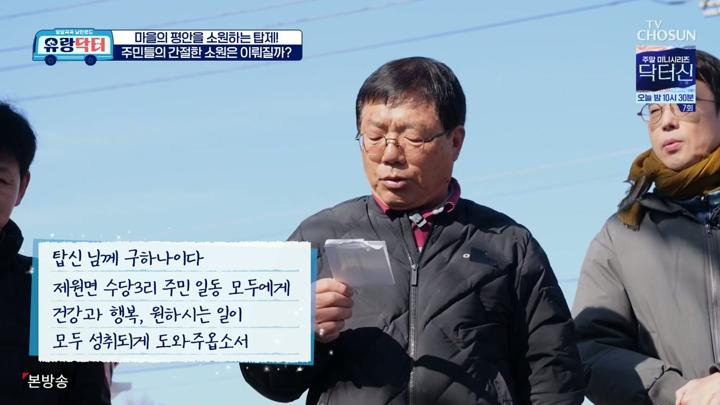 방방곡곡 낭만뺑드
유랑닥터
마을의 평안을 소원하는 탑제!
주민들의 간절한 소원은 이뤄질까?
TV CHOSUN
주말 미니시리즈
닥터신
오늘 밤 10시 30분
7회
탑신 님께 구하나이다
제원면 수당3리 주민 일동 모두에게
건강과 행복, 원하시는 일이
모두 성취되게 도와주옵소서
본방송